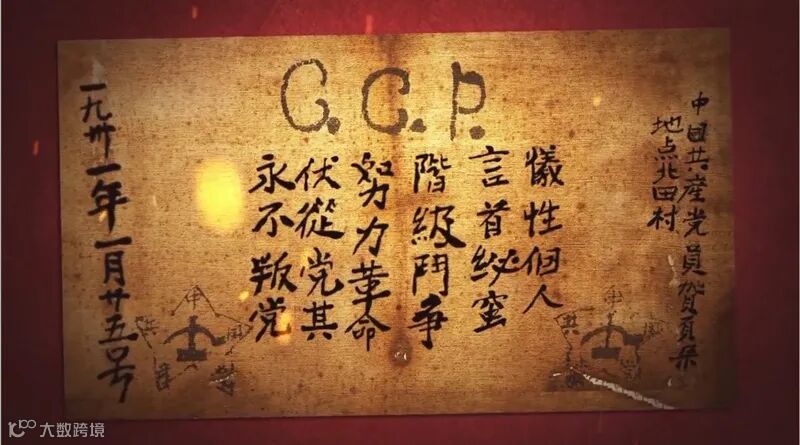 C.C.P.
中囯共産党員賀頁朵
地点北田村
犠性個人
言首秘密
階級鬥争
努力革命
伏從党其
永不叛党
一九卅一年一月廿五号
大数跨境